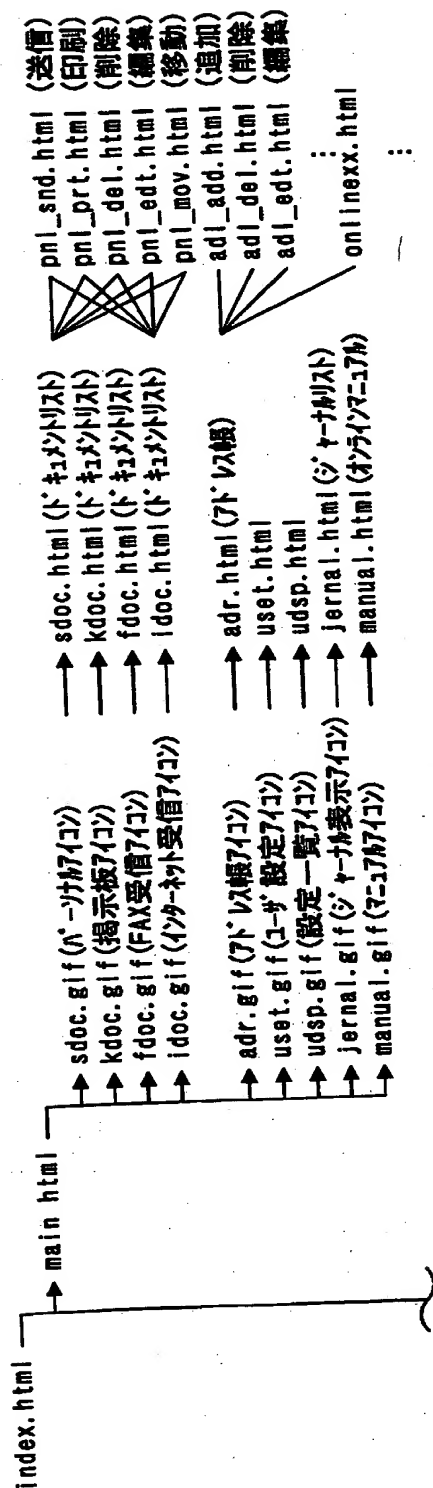 index.html
main html
sdoc.gif(ﾊﾟｰｿﾅﾙｱｲｺﾝ)
kdoc.gif(掲示板ｱｲｺﾝ)
fdoc.gif(FAX受信ｱｲｺﾝ)
idoc.gif(ｲﾝﾀｰﾈｯﾄ受信ｱｲｺﾝ)
adr.gif(ｱﾄﾞﾚｽ帳ｱｲｺﾝ)
uset.gif(ﾕｰｻﾞ設定ｱｲｺﾝ)
udsp.gif(設定一覧ｱｲｺﾝ)
jernal.gif(ｼﾞｬｰﾅﾙ表示ｱｲｺﾝ)
manual.gif(ﾏﾆｭｱﾙｱｲｺﾝ)
sdoc.html(ﾄﾞｷｭﾒﾝﾄﾘｽﾄ)
kdoc.html(ﾄﾞｷｭﾒﾝﾄﾘｽﾄ)
fdoc.html(ﾄﾞｷｭﾒﾝﾄﾘｽﾄ)
idoc.html(ﾄﾞｷｭﾒﾝﾄﾘｽﾄ)
adr.html(ｱﾄﾞﾚｽ帳)
uset.html
udsp.html
jernal.html(ｼﾞｬｰﾅﾙﾘｽﾄ)
manual.html(ｵﾝﾗｲﾝﾏﾆｭｱﾙ)
pnl_snd.html (送信)
pnl_prt.html (印刷)
pnl_del.html (削除)
pnl_edt.html (編集)
pnl_mov.html (移動)
adl_add.html (追加)
adl_del.html (削除)
adl_edt.html (編集)
onlinexx.html